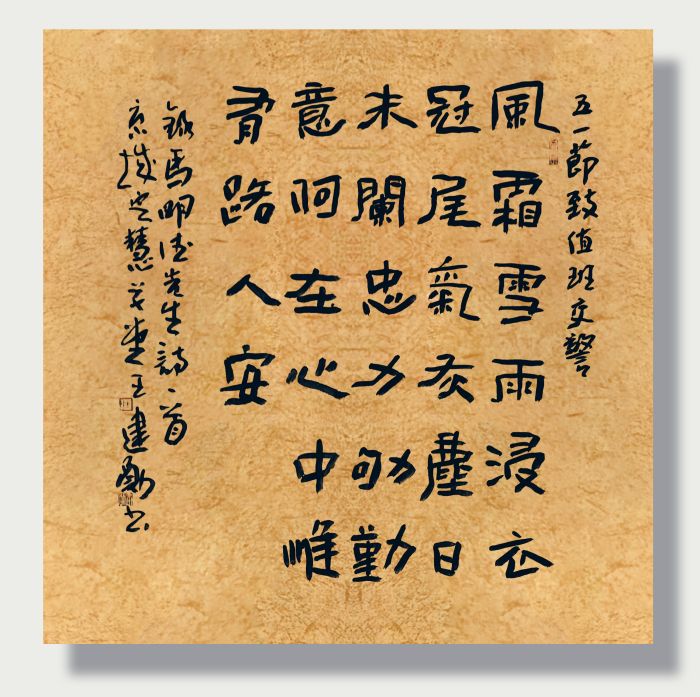 五一節致值班交警
風霜雪雨浸衣
冠尾氣灰塵日
未闌忠力劬勤
意何在心中惟
有路人安
錄馬明德先生詩一首
京城慧草堂王建勛书